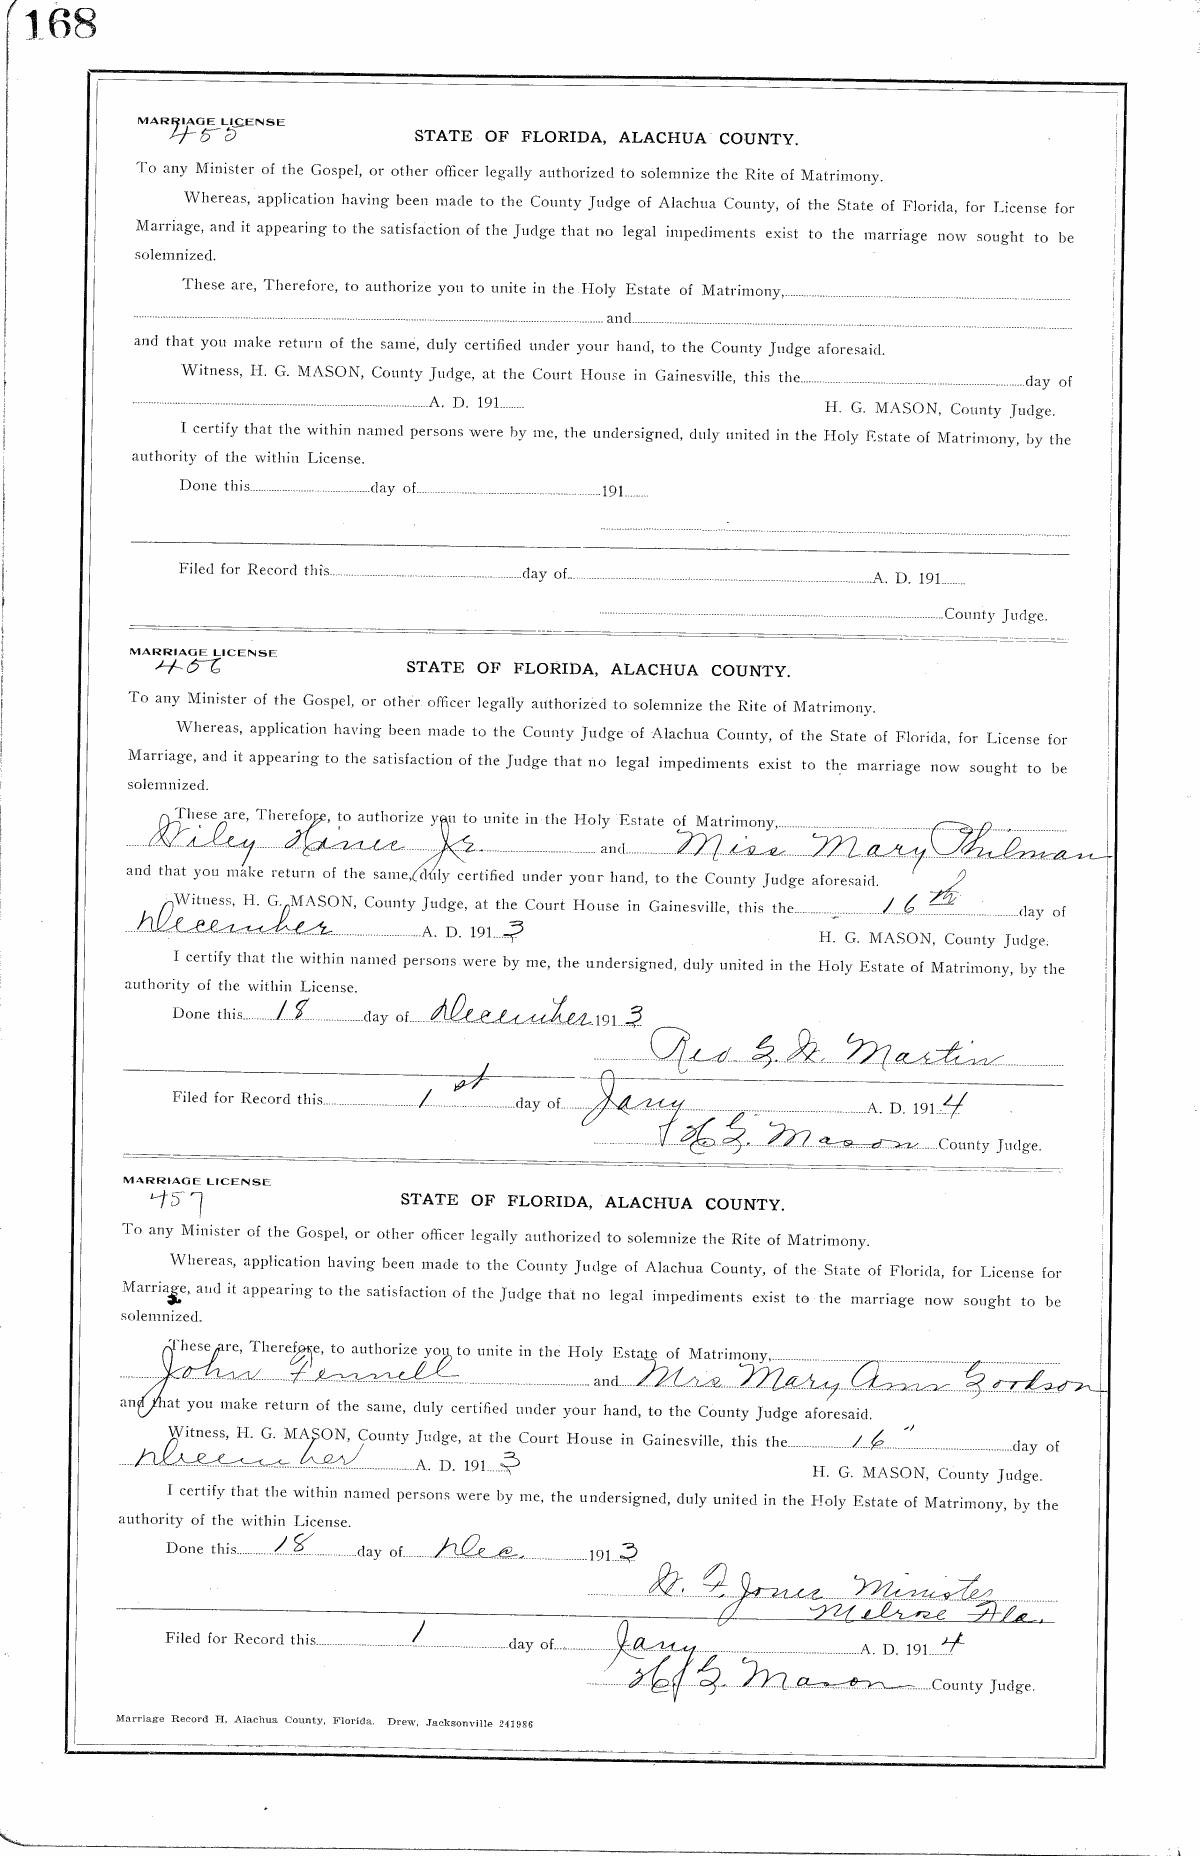 168
MARRIAGE LICENSE
455
STATE OF FLORIDA, ALACHUA COUNTY.
To any Minister of the Gospel, or other officer legally authorized to solemnize the Rite of Matrimony.
Whereas, application having been made to the County Judge of Alachua County, of the State of Florida, for License for
Marriage, and it appearing to the satisfaction of the Judge that no legal impediments exist to the marriage now sought to be
solemnized.
These are, Therefore, to authorize you to unite in the Holy Estate of Matrimony,
and
and that you make return of the same, duly certified under your hand, to the County Judge aforesaid.
Witness, H. G. MASON, County Judge, at the Court House in Gainesville, this the day of
A. D. 191 H. G. MASON, County Judge.
I certify that the within named persons were by me, the undersigned, duly united in the Holy Estate of Matrimony, by the
authority of the within License.
Done this day of 191
Filed for Record this day of A. D. 191
County Judge.
MARRIAGE LICENSE
456
STATE OF FLORIDA, ALACHUA COUNTY.
To any Minister of the Gospel, or other officer legally authorized to solemnize the Rite of Matrimony.
Whereas, application having been made to the County Judge of Alachua County, of the State of Florida, for License for
Marriage, and it appearing to the satisfaction of the Judge that no legal impediments exist to the marriage now sought to be
solemnized.
These are, Therefore, to authorize you to unite in the Holy Estate of Matrimony,
Wiley Hines Jr. and Miss Mary Philman
and that you make return of the same, duly certified under your hand, to the County Judge aforesaid.
Witness, H. G. MASON, County Judge, at the Court House in Gainesville, this the 16th day of
December A. D. 1913 H. G. MASON, County Judge.
I certify that the within named persons were by me, the undersigned, duly united in the Holy Estate of Matrimony, by the
authority of the within License.
Done this 18 day of December 1913
Rev G. W. Martin
Filed for Record this 1st day of Jany A. D. 1914
H G. Mason County Judge.
MARRIAGE LICENSE
457
STATE OF FLORIDA, ALACHUA COUNTY.
To any Minister of the Gospel, or other officer legally authorized to solemnize the Rite of Matrimony.
Whereas, application having been made to the County Judge of Alachua County, of the State of Florida, for License for
Marriage, and it appearing to the satisfaction of the Judge that no legal impediments exist to the marriage now sought to be
solemnized.
These are, Therefore, to authorize you to unite in the Holy Estate of Matrimony,
John Fennell and Mrs Mary Ann Gookson
and that you make return of the same, duly certified under your hand, to the County Judge aforesaid.
Witness, H. G. MASON, County Judge, at the Court House in Gainesville, this the 16" day of
December A. D. 1913 H. G. MASON, County Judge.
I certify that the within named persons were by me, the undersigned, duly united in the Holy Estate of Matrimony, by the
authority of the within License.
Done this 18 day of Dec. 1913
W. F. Jones Minister
Melrose Fla.
Filed for Record this 1 day of Jany A. D. 1914
H G. Mason County Judge.
Marriage Record H, Alachua County, Florida. Drew, Jacksonville 241986